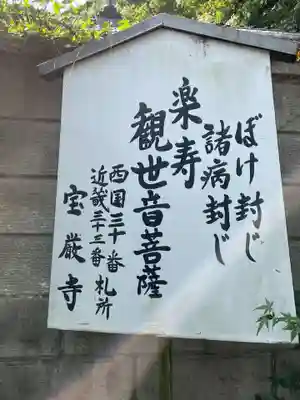 ぼけ封じ
諸病封じ
楽寿
観世音菩薩
西国三十番
近畿三十三番 札所
宝厳寺